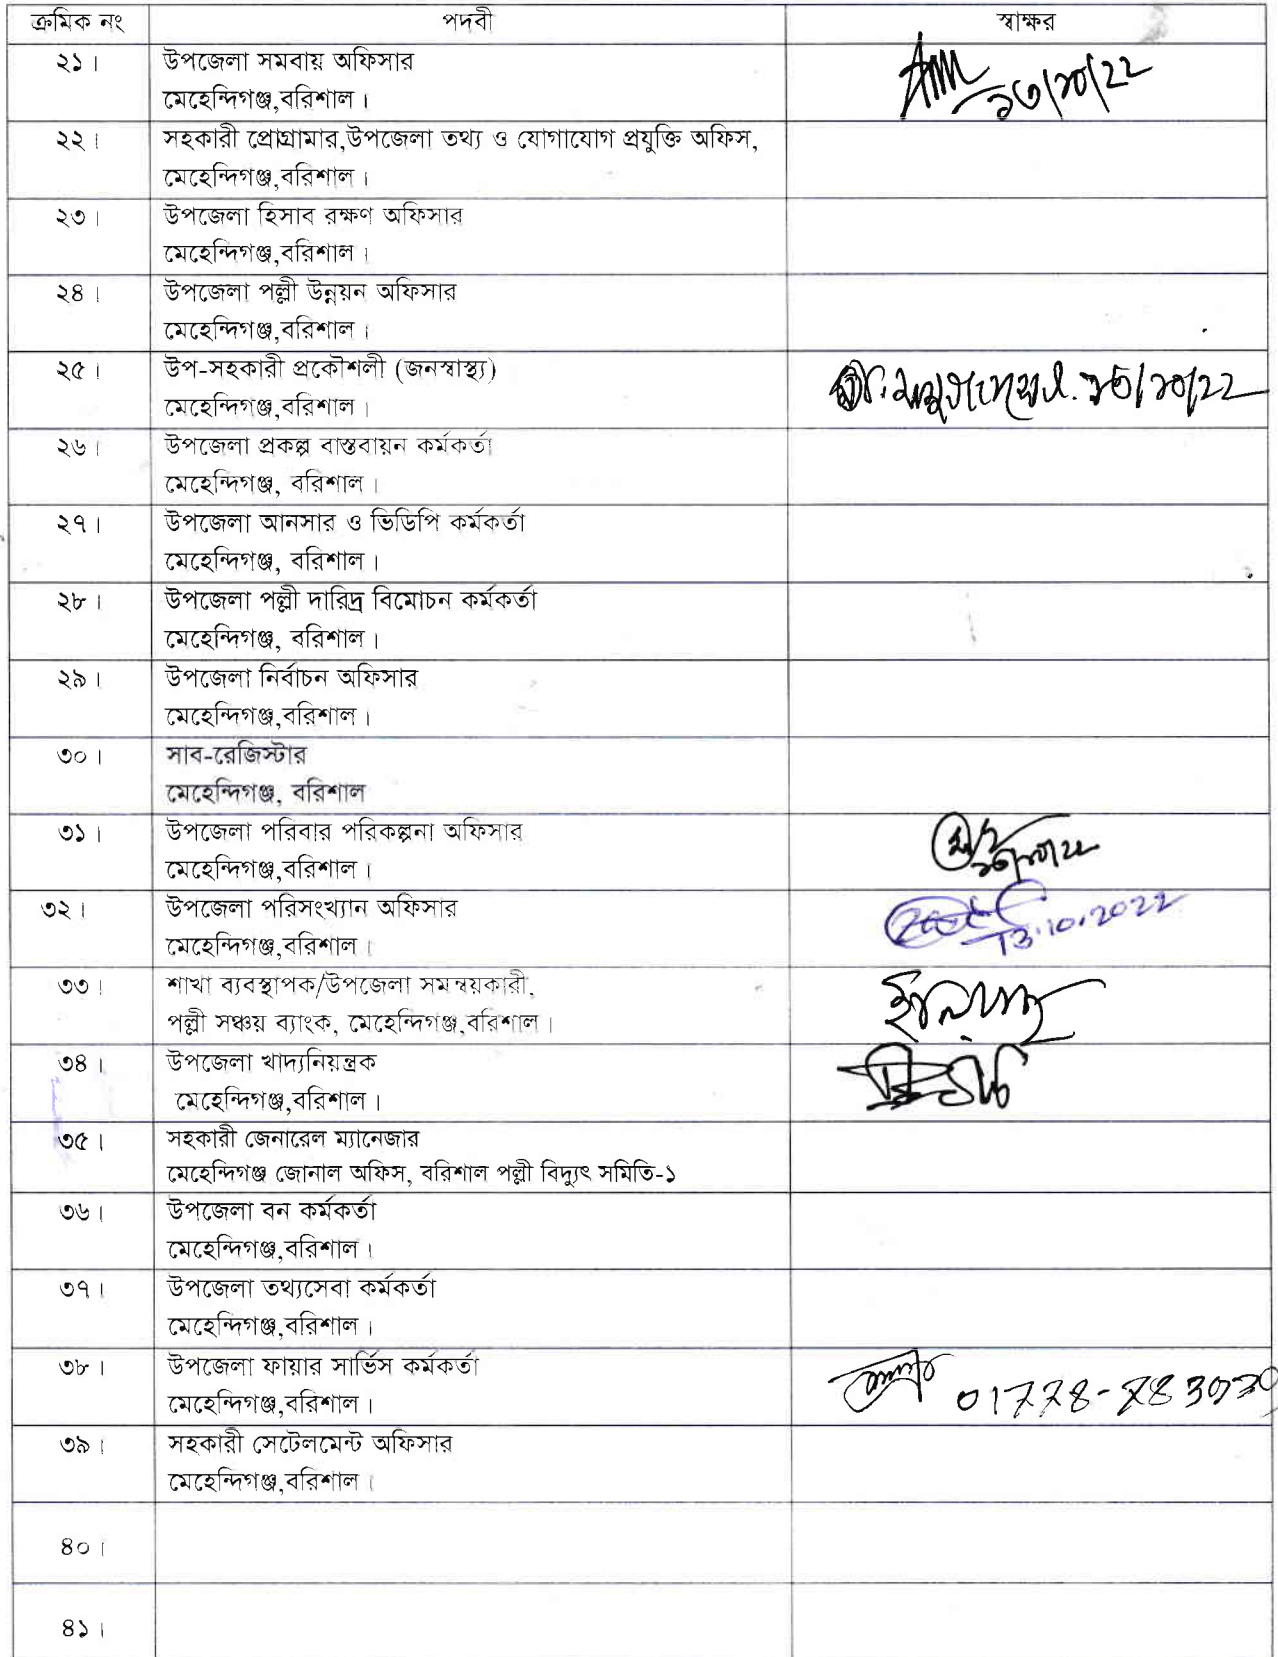 ক্রমিক নং পদবী স্বাক্ষর
২১। উপজেলা সমবায় অফিসার
মেহেন্দিগঞ্জ,বরিশাল। ১৩/১০/২২
২২। সহকারী প্রোগ্রামার,উপজেলা তথ্য ও যোগাযোগ প্রযুক্তি অফিস,
মেহেন্দিগঞ্জ,বরিশাল।
২৩। উপজেলা হিসাব রক্ষণ অফিসার
মেহেন্দিগঞ্জ,বরিশাল।
২৪। উপজেলা পল্লী উন্নয়ন অফিসার
মেহেন্দিগঞ্জ,বরিশাল।
২৫। উপ-সহকারী প্রকৌশলী (জনস্বাস্থ্য)
মেহেন্দিগঞ্জ,বরিশাল। ১৩/১০/২২
২৬। উপজেলা প্রকল্প বাস্তবায়ন কর্মকর্তা
মেহেন্দিগঞ্জ, বরিশাল।
২৭। উপজেলা আনসার ও ভিডিপি কর্মকর্তা
মেহেন্দিগঞ্জ, বরিশাল।
২৮। উপজেলা পল্লী দারিদ্র বিমোচন কর্মকর্তা
মেহেন্দিগঞ্জ, বরিশাল।
২৯। উপজেলা নির্বাচন অফিসার
মেহেন্দিগঞ্জ,বরিশাল।
৩০। সাব-রেজিস্টার
মেহেন্দিগঞ্জ, বরিশাল
৩১। উপজেলা পরিবার পরিকল্পনা অফিসার
মেহেন্দিগঞ্জ,বরিশাল। ১৩/১০/২২
৩২। উপজেলা পরিসংখ্যান অফিসার
মেহেন্দিগঞ্জ,বরিশাল। 13.10.2022
৩৩। শাখা ব্যবস্থাপক/উপজেলা সমন্বয়কারী,
পল্লী সঞ্চয় ব্যাংক, মেহেন্দিগঞ্জ,বরিশাল।
৩৪। উপজেলা খাদ্যনিয়ন্ত্রক
মেহেন্দিগঞ্জ,বরিশাল।
৩৫। সহকারী জেনারেল ম্যানেজার
মেহেন্দিগঞ্জ জোনাল অফিস, বরিশাল পল্লী বিদ্যুৎ সমিতি-১
৩৬। উপজেলা বন কর্মকর্তা
মেহেন্দিগঞ্জ,বরিশাল।
৩৭। উপজেলা তথ্যসেবা কর্মকর্তা
মেহেন্দিগঞ্জ,বরিশাল।
৩৮। উপজেলা ফায়ার সার্ভিস কর্মকর্তা
মেহেন্দিগঞ্জ,বরিশাল।
৩৯। সহকারী সেটেলমেন্ট অফিসার
মেহেন্দিগঞ্জ,বরিশাল।
৪০।
৪১।